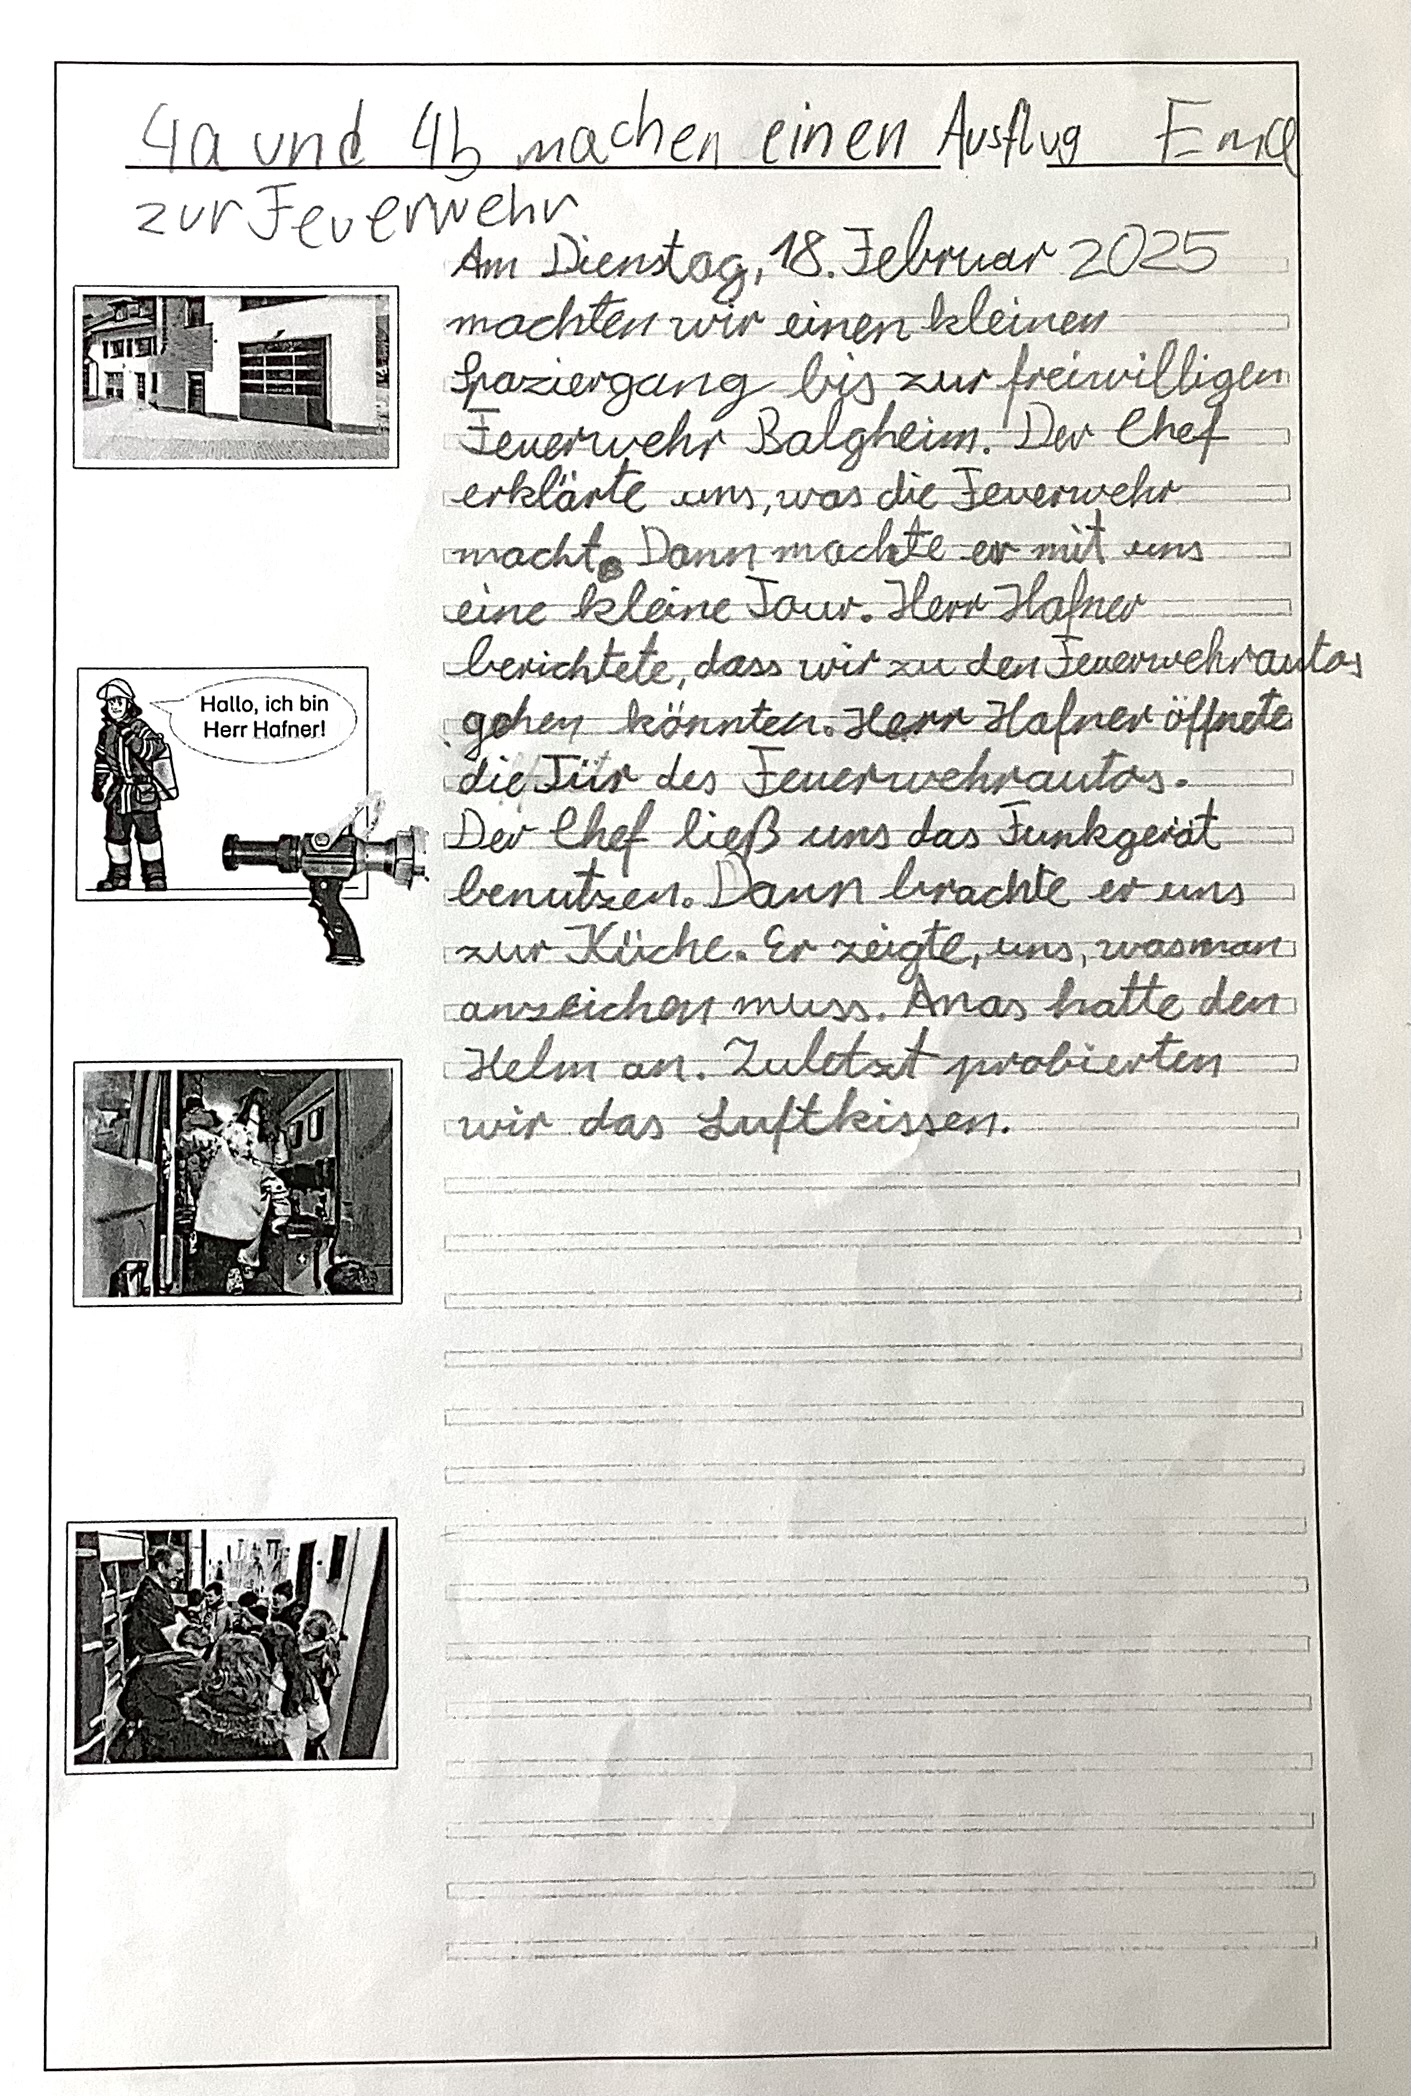 4a und 4b machen einen Ausflug Emil
zur Feuerwehr
Am Dienstag, 18. Februar 2025
machten wir einen kleinen
Spaziergang bis zur freiwilligen
Feuerwehr Balgheim. Der Chef
erklärte uns, was die Feuerwehr
macht. Dann machte er mit uns
eine kleine Tour. Herr Hafner
berichtete, dass wir zu den Feuerwehrautos
gehen könnten. Herr Hafner öffnete
die Tür des Feuerwehrautos.
Der Chef ließ uns das Funkgerät
benutzen. Dann brachte er uns
zur Küche. Er zeigte, uns, was man
anzeichen muss. Anas hatte den
Helm an. Zuletzt probierten
wir das Luftkissen.
Hallo, ich bin
Herr Hafner!